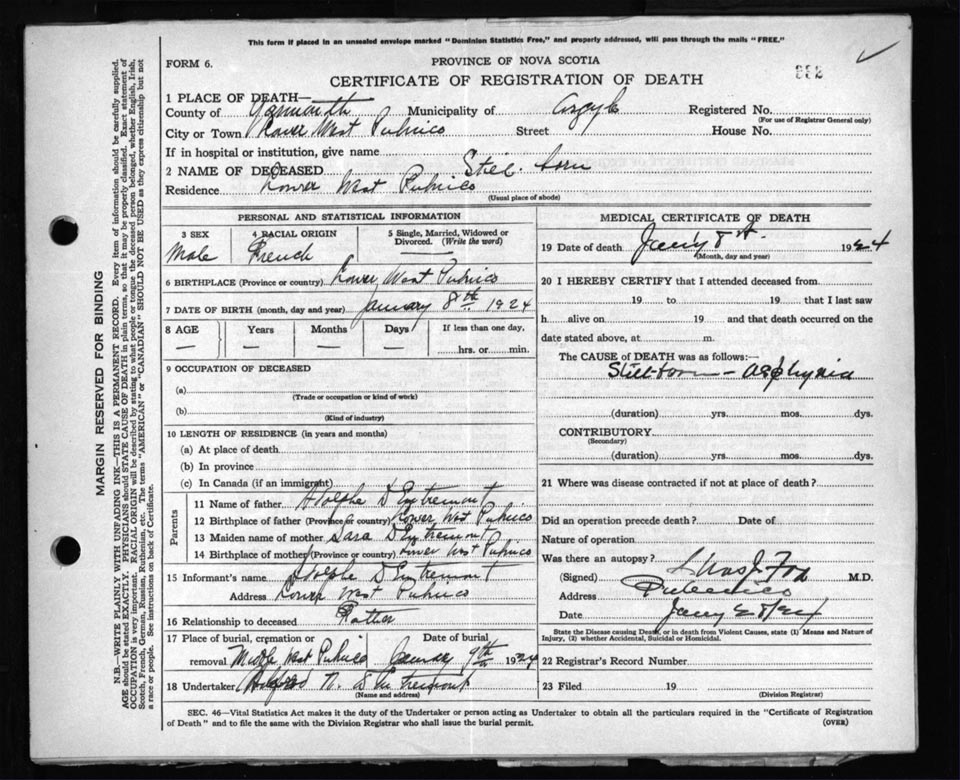 This form if placed in an unsealed envelope marked "Dominion Statistics Free," and properly addressed, will pass through the mails "FREE."
FORM 6.
PROVINCE OF NOVA SCOTIA
CERTIFICATE OF REGISTRATION OF DEATH
1 PLACE OF DEATH—
County of Yarmouth Municipality of Argyle Registered No.
(For use of Registrar General only)
City or Town Lower West Pubnico Street House No.
If in hospital or institution, give name
2 NAME OF DECEASED Still born
Residence Lower West Pubnico
(Usual place of abode)
PERSONAL AND STATISTICAL INFORMATION
3 SEX 4 RACIAL ORIGIN 5 Single, Married, Widowed or Divorced. (Write the word)
Male French —
6 BIRTHPLACE (Province or country) Lower West Pubnico
7 DATE OF BIRTH (month, day and year) January 8th 1924
8 AGE Years Months Days If less than one day,
— — — — hrs. or min.
9 OCCUPATION OF DECEASED
(a)
(Trade or occupation or kind of work)
(b)
(Kind of industry)
10 LENGTH OF RESIDENCE (in years and months)
(a) At place of death
(b) In province
(c) In Canada (if an immigrant)
Parents
11 Name of father Adolphe D'Entremont
12 Birthplace of father (Province or country) Lower West Pubnico
13 Maiden name of mother Sara D'Entremont
14 Birthplace of mother (Province or country) Lower West Pubnico
15 Informant's name Adolphe D'Entremont
Address Lower West Pubnico
16 Relationship to deceased Father
17 Place of burial, cremation or removal Date of burial
Middle West Pubnico January 9th 1924
18 Undertaker N. D'Entremont
(Name and address)
MEDICAL CERTIFICATE OF DEATH
19 Date of death Jany 8th 1924
(Month, day and year)
20 I HEREBY CERTIFY that I attended deceased from
19 to 19 that I last saw
h alive on 19 and that death occurred on the
date stated above, at m.
The CAUSE of DEATH was as follows:—
Still-born — asphyxia
(duration) yrs. mos. dys.
CONTRIBUTORY
(Secondary)
(duration) yrs. mos. dys.
21 Where was disease contracted if not at place of death?
Did an operation precede death? Date of
Nature of operation
Was there an autopsy?
(Signed) Chas J. Fox M.D.
Address Pubnico
Date Jany
State the Disease causing Death, or in death from Violent Causes, state (1) Means and Nature of
Injury, (2) whether Accidental, Suicidal or Homicidal.
22 Registrar's Record Number
23 Filed 19
(Division Registrar)
SEC. 46—Vital Statistics Act makes it the duty of the Undertaker or person acting as Undertaker to obtain all the particulars required in the "Certificate of Registration
of Death" and to file the same with the Division Registrar who shall issue the burial permit. (OVER)
MARGIN RESERVED FOR BINDING
N.B.—WRITE PLAINLY WITH UNFADING INK—THIS IS A PERMANENT RECORD. Every item of information should be carefully supplied.
AGE should be stated EXACTLY. PHYSICIANS should STATE CAUSE OF DEATH in plain terms, so that it may be properly classified. Exact statement of
OCCUPATION is very important. RACIAL ORIGIN will be described by stating to what people or tongue the deceased person belonged, whether English, Irish,
Scotch, French, German, Russian, Ruthenian, etc. The terms "AMERICAN" or "CANADIAN" SHOULD NOT BE USED as they express citizenship but not
a race or people. See instructions on back of Certificate.